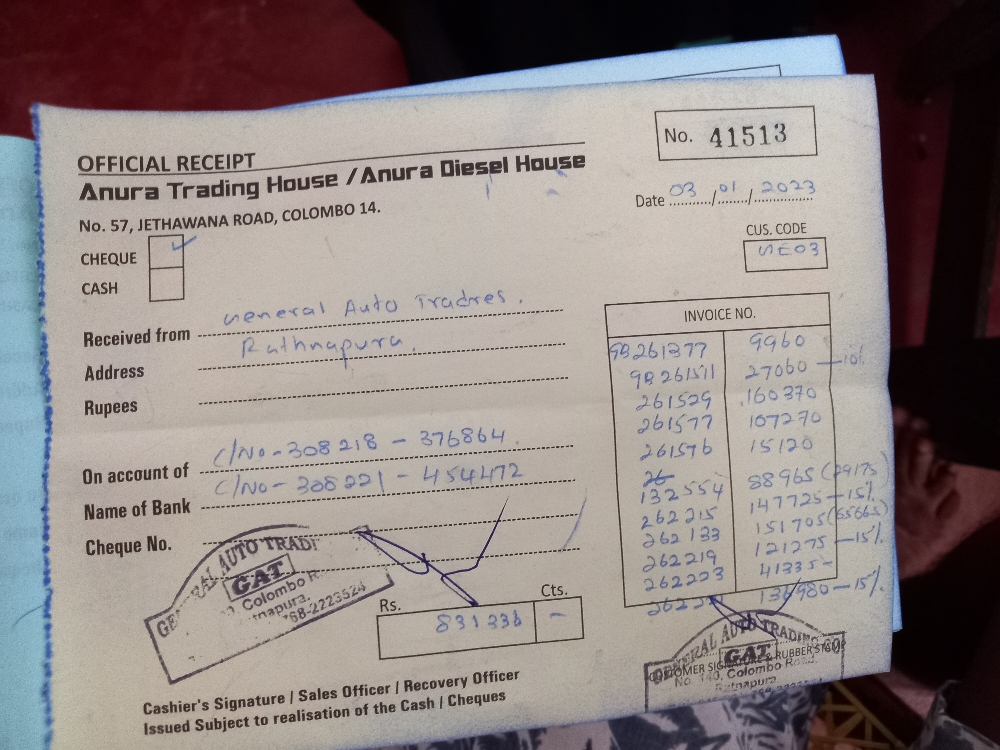 No. 41513
OFFICIAL RECEIPT
Anura Trading House / Anura Diesel House
No. 57, JETHAWANA ROAD, COLOMBO 14.
Date 03/01/2023
CUS. CODE
GE03
CHEQUE ✓
CASH
Received from General Auto Tradres.
Address Rathnapura.
Rupees
On account of C/No - 308218 - 376864.
Name of Bank C/No - 308221 - 454472
Cheque No.
INVOICE NO.
98261377 9960
98261511 27060 — 10%
261529 160370
261577 107270
261576 15120
26
132554 88965 (29175)
262215 147725 — 15%
262133 151705 (65665)
262219 121275 — 15%
262223 41335 -
136980 — 15%
Rs. 831336 Cts. -
GENERAL AUTO TRADI
GAT.
Colombo R
tnapura.
768-2223524
GENERAL AUTO TRADING CO
GAT
CUSTOMER SIGNATURE & RUBBER STAMP
No. 140, Colombo Road,
Ratnapura.
Cashier's Signature / Sales Officer / Recovery Officer
Issued Subject to realisation of the Cash / Cheques